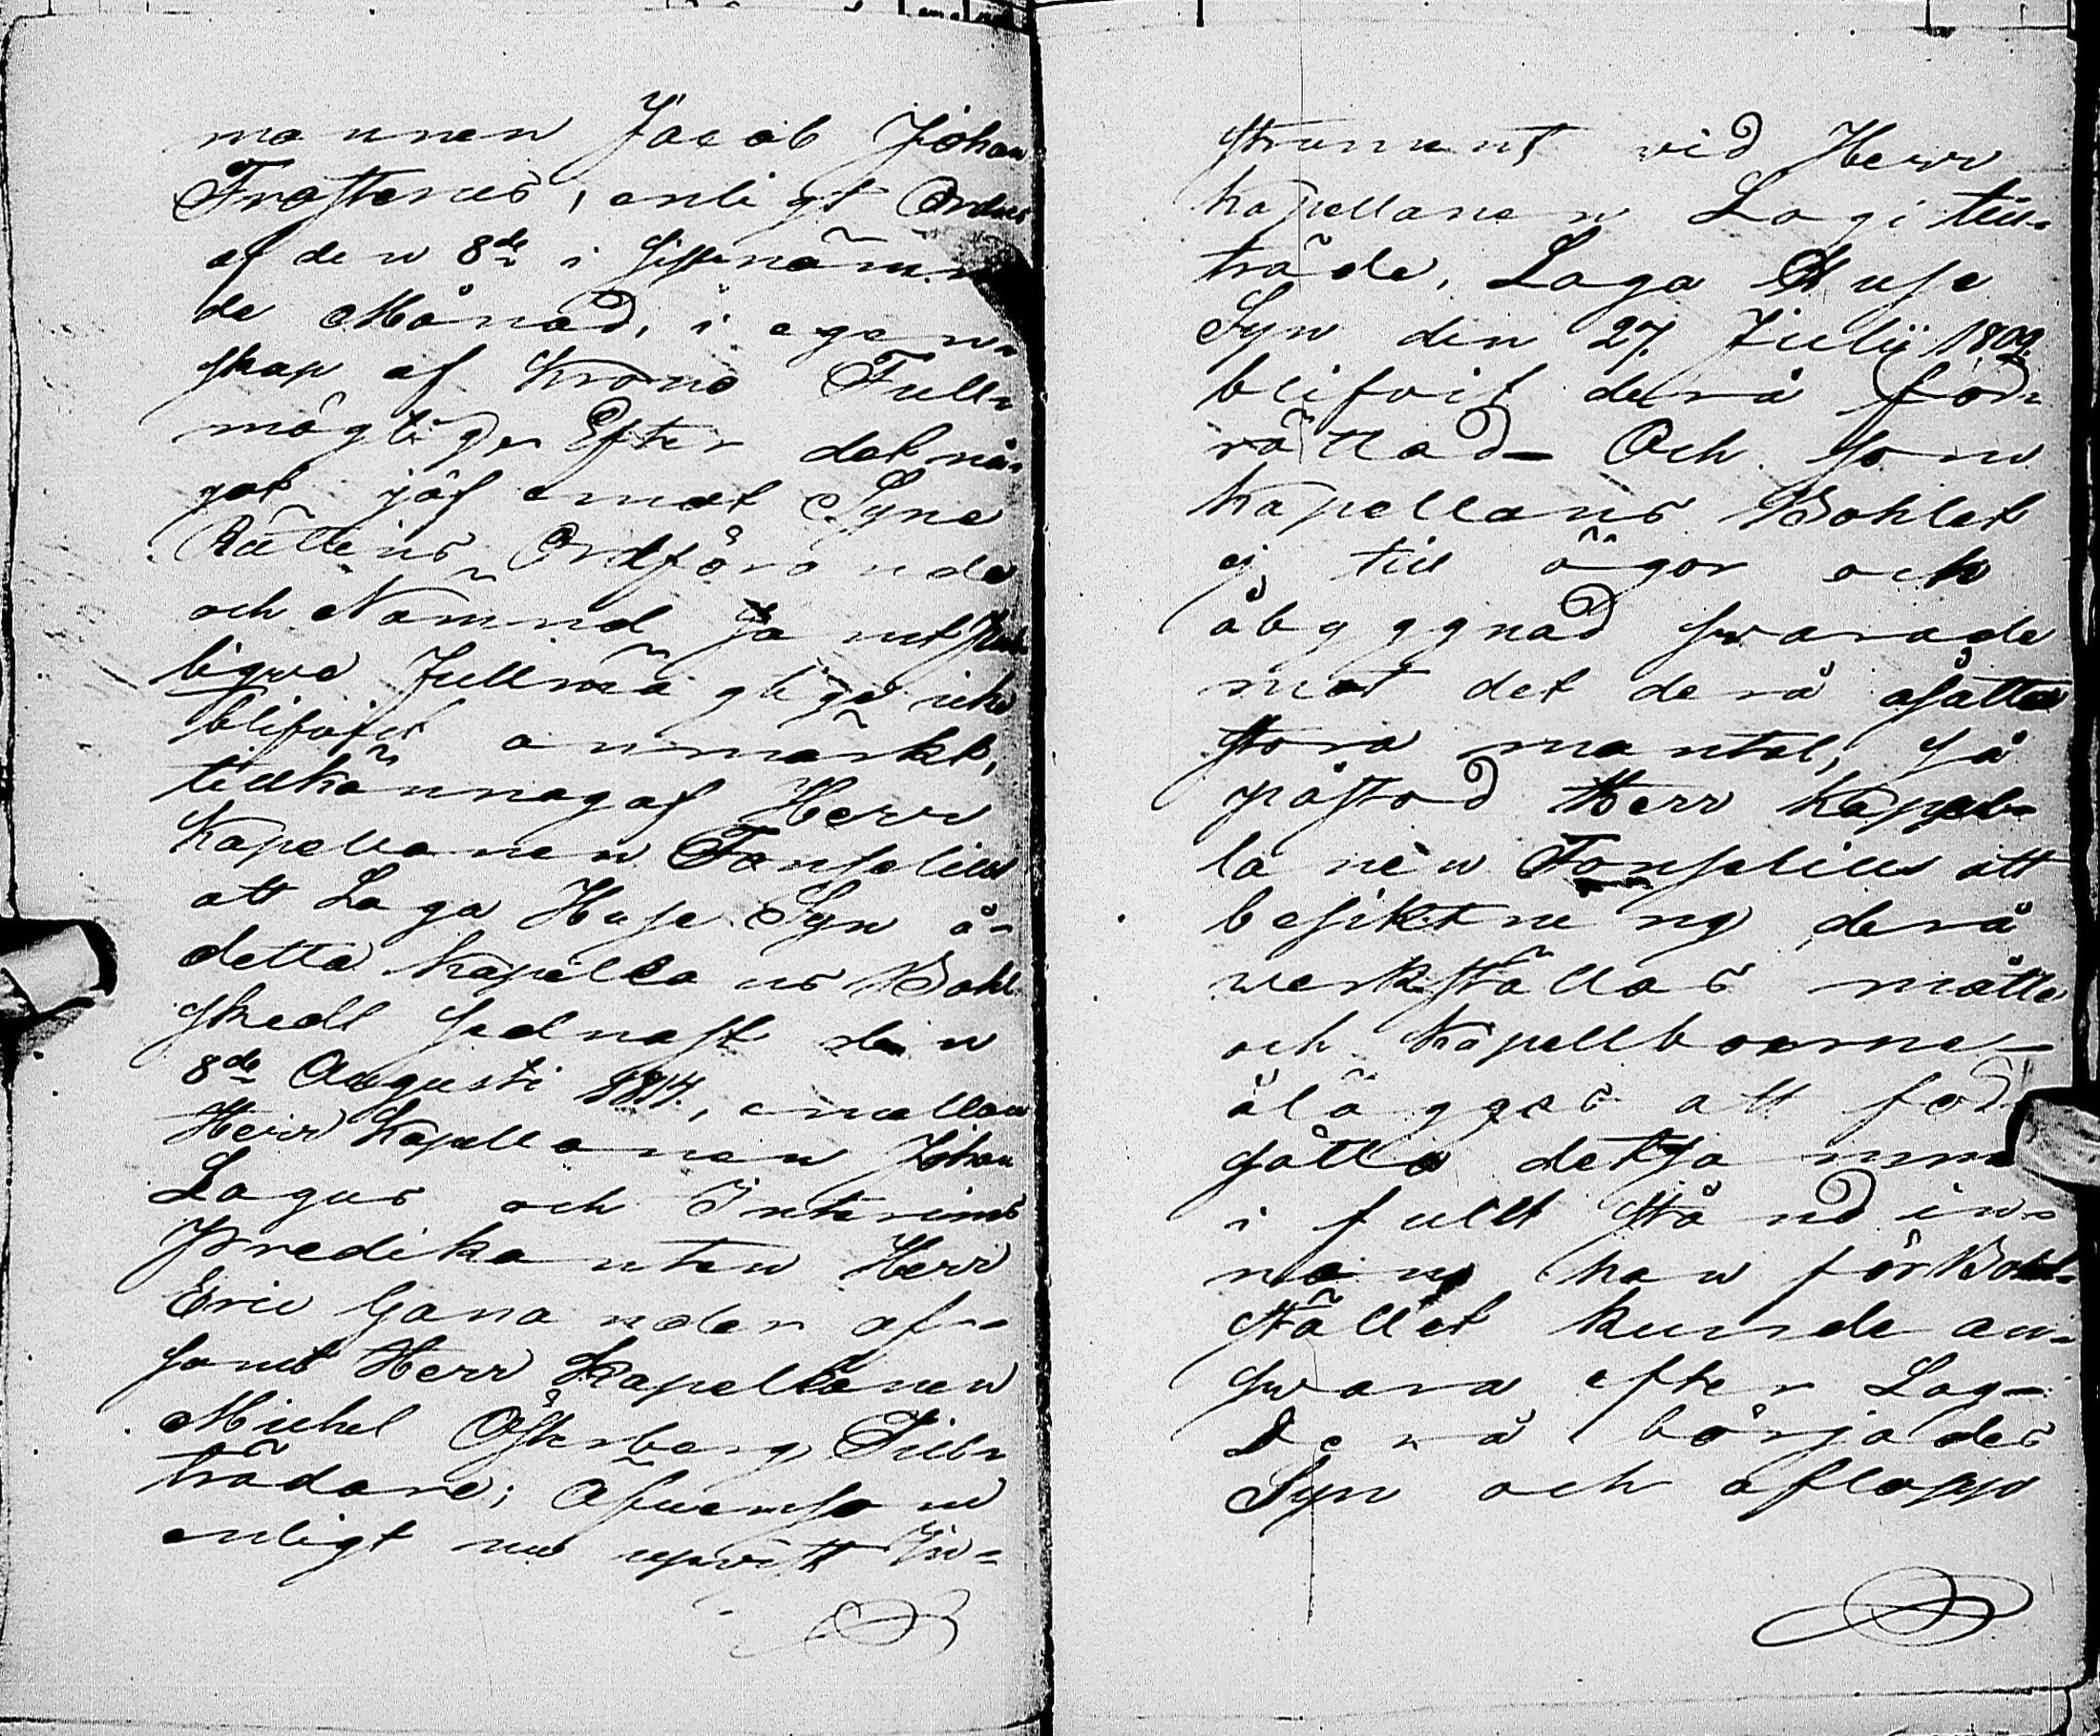 mannen Jacob Johan
Frosterus, enligt Ordres
af den 8de i sistnämn
de Månad, i egen=
skap af Krono Full=
mägtige. Efter det nå=
got jäf emot Syne
Rättens Ordförande
och Nämnd samt
ligare Fullmäglige icke
blifvit anmärkt,
tillkännagaf Herr
Kapellanen Fonselius
att Laga Huse Syn å=
detta Kapellans Bohl
skedt sednast den
8de Augusti 1814, emellan
Herr Kapellanen Johan
Lagus och Interims
Predikanten Herr
Eric Ganander af=
samt Herr Kapellanen
Michel Österberg Till=
trädare; Äfvensom
enligt nu uprist In=
strument vid Herr
Kapellanen Lagi till=
träde, Laga Huse
Syn den 27. Julii 1809.
blifvit derå för=
rättad. Och som
Kapellans Bohlet
ej till ägor och
åbyggnad swarade
mot det derå asatta
stora mantal, så
påstod Herr Kapel=
lanen Fonselius att
besiktning derå
werkställas måtte
och Kapellboerne
åläggas att fod
sätta detsamma
i fullt stånd in=
nan han för Bohl=
stället kunde an=
swara efter Lag=
Derå börjades
Syn och aflopp